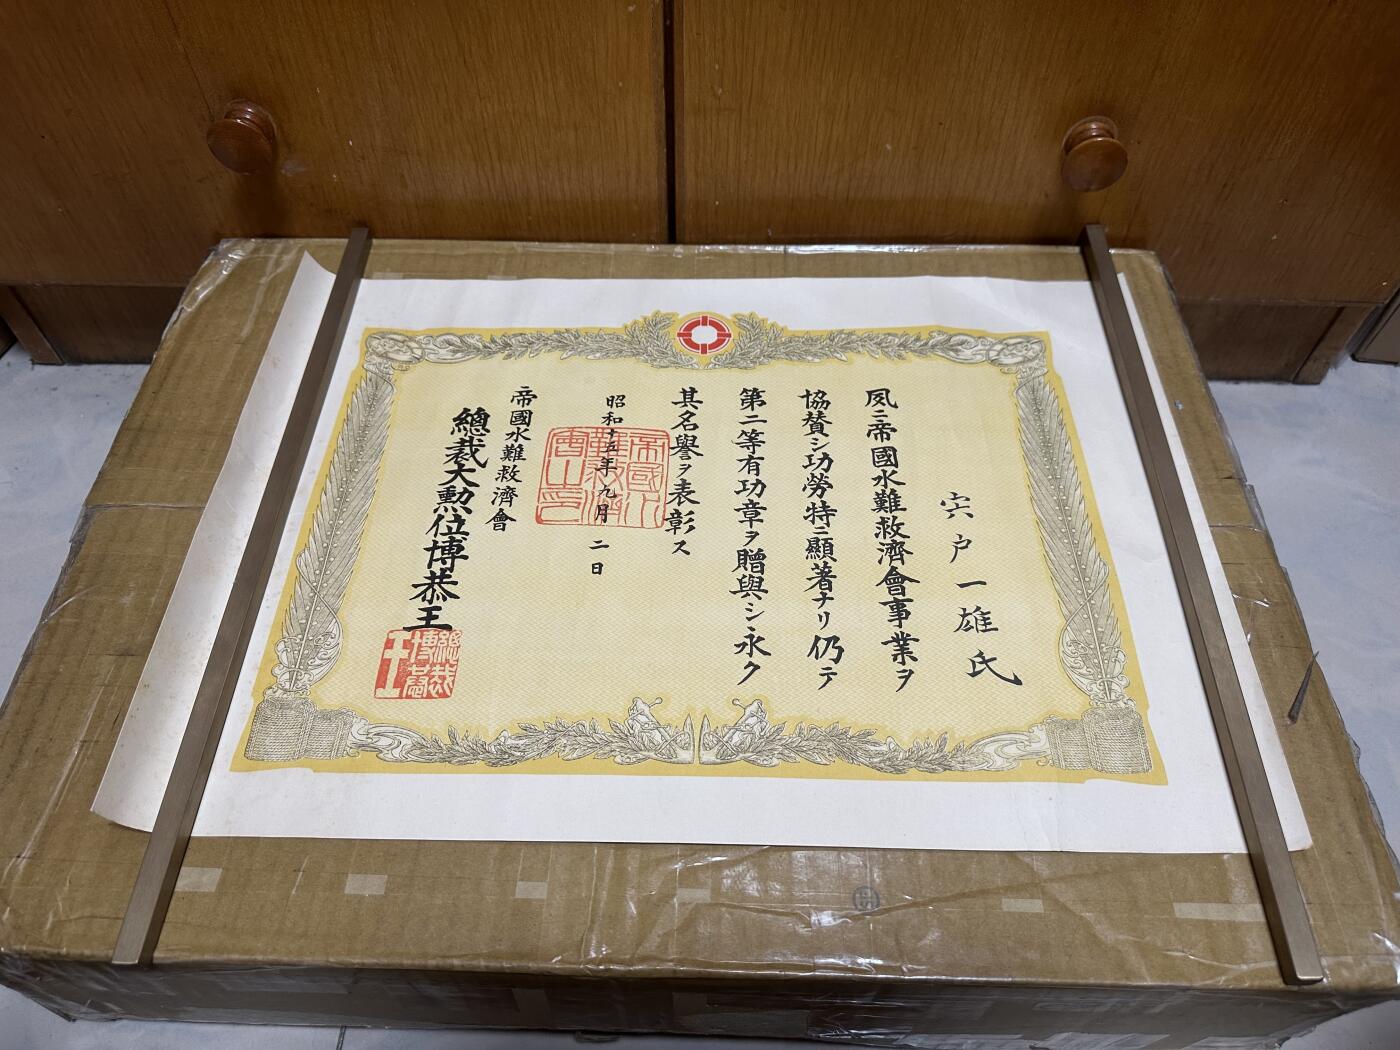 宍戸一雄氏
夙ニ帝國水難救濟會事業ヲ
協賛シ功勞特ニ顯著ナリ仍テ
第二等有功章ヲ贈與シ永ク
其名譽ヲ表彰ス
昭和十五年九月二日
帝國水難救濟會
總裁大勲位博恭王
帝國水難救濟會之印
總裁博恭王